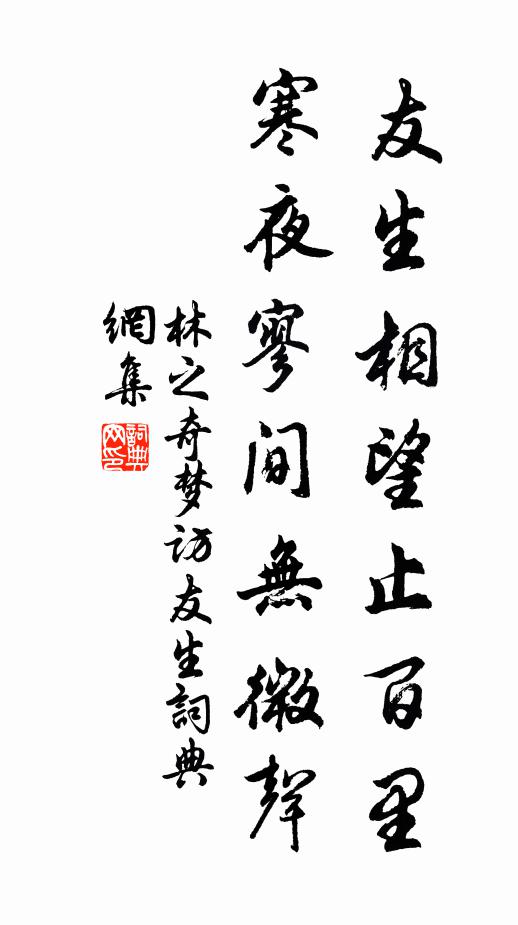 友生相望止百里
寒夜寥间無微聲
林之奇梦访友生詞典
網集
詞典网印